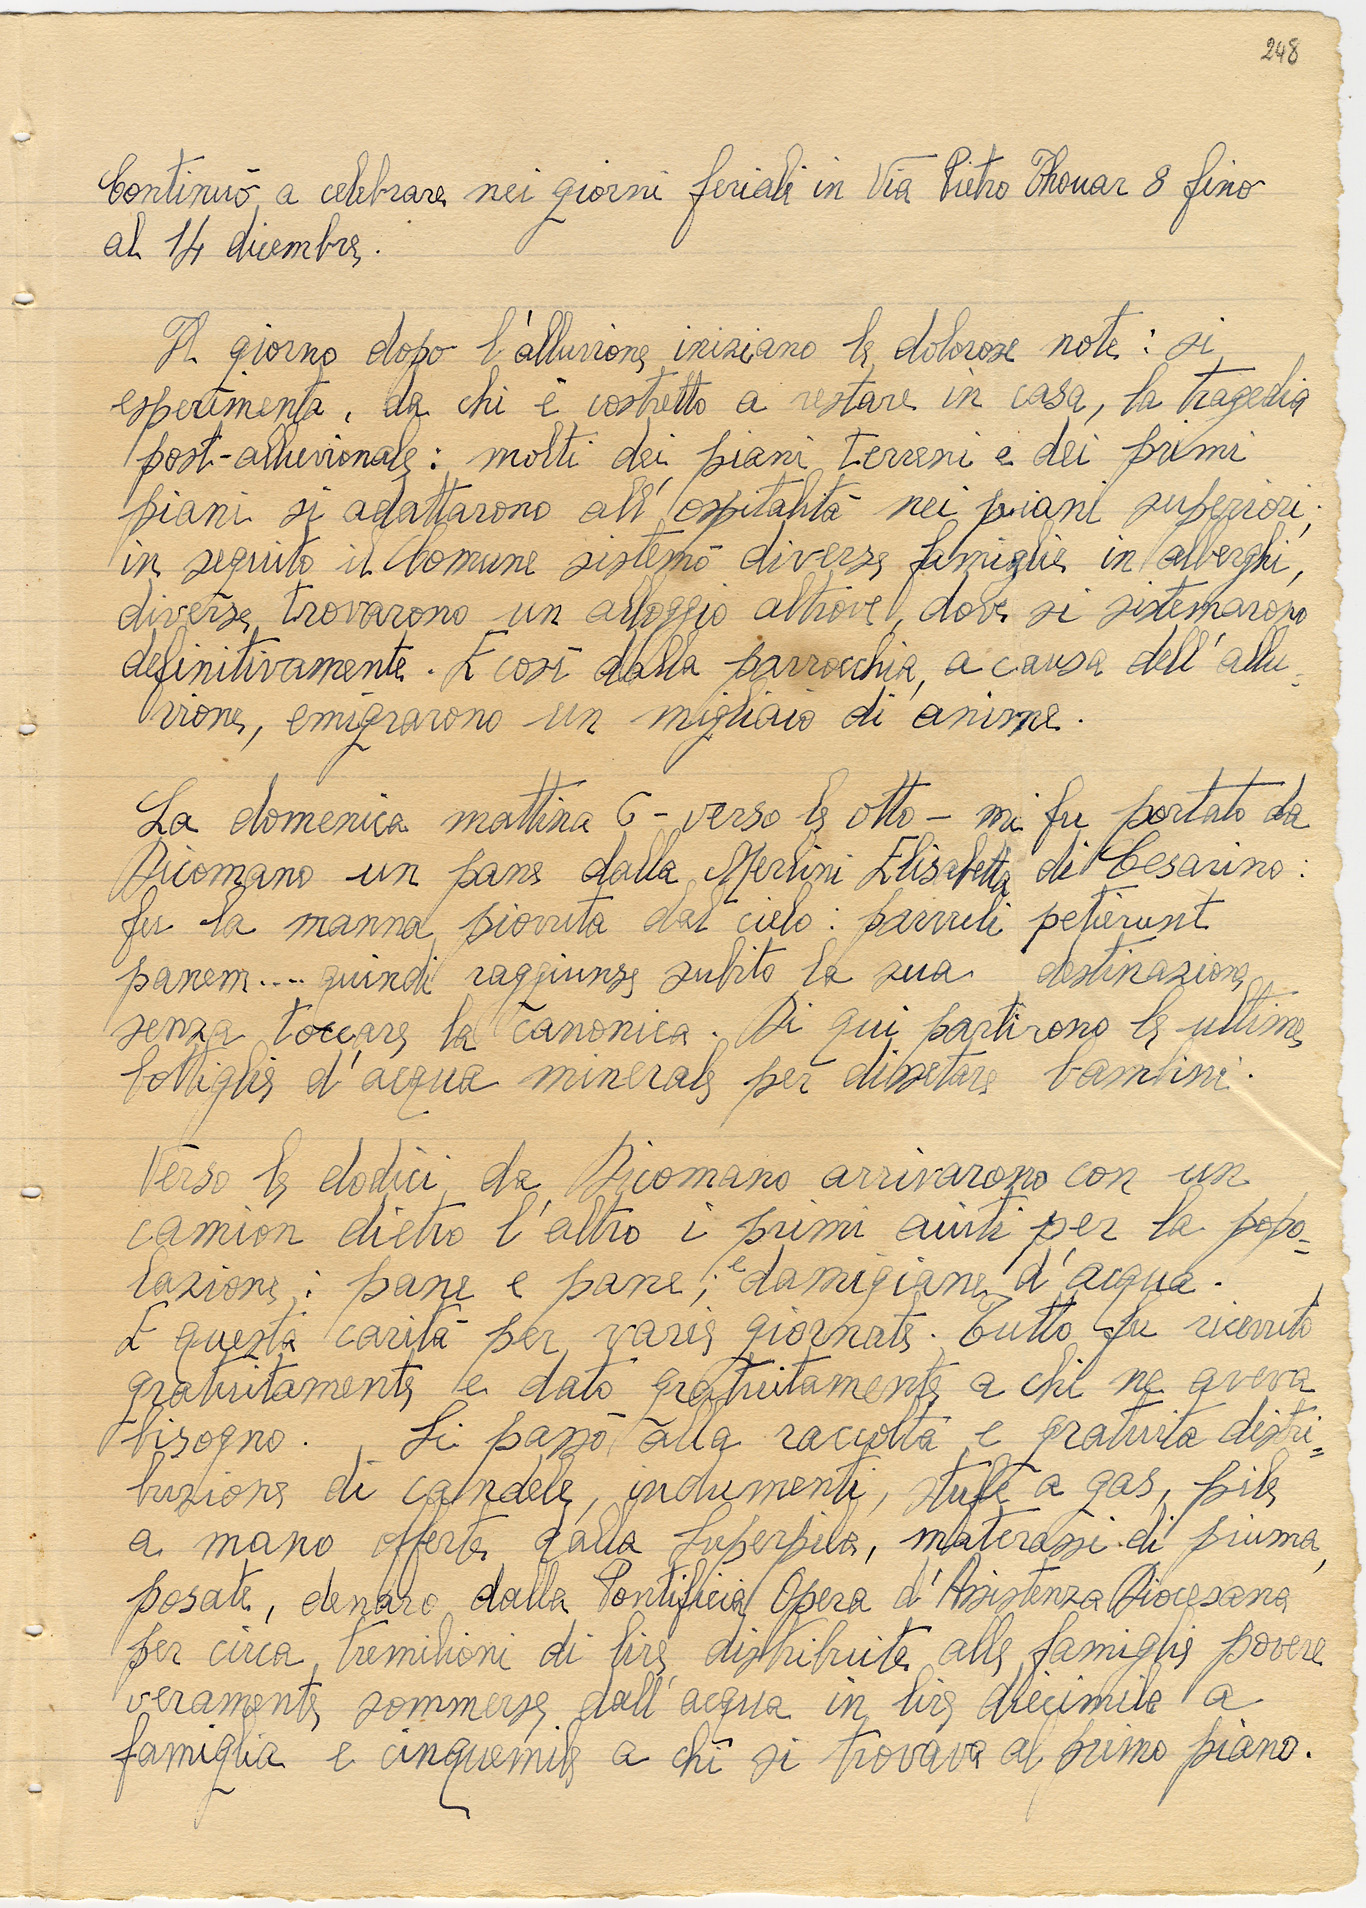 248
Continuò a celebrare nei giorni feriali in Via Pietro Thouar 8 fino
al 14 dicembre.
Il giorno dopo l'alluvione iniziano le dolorose note: si
esperimenta, da chi è costretto a restare in casa, la tragedia
post-alluvionale: molti dei piani terreni e dei primi
piani si adattarono all'ospitalità nei piani superiori;
in seguito il Comune sistemò diverse famiglie in alberghi,
diverse trovarono un alloggio altrove, dove si sistemarono
definitivamente. E così dalla parrocchia, a causa dell'allu=
vione, emigrarono un migliaio di anime.
La domenica mattina 6 - verso le otto - mi fu portato da
Dicomano un pane dalla Merlini Elisabetta di Cesarino:
fu la manna piovuta dal cielo: parvuli petierunt
panem.... quindi raggiunse subito la sua destinazione
senza toccare la canonica. Di qui partirono le ultime
bottiglie d'acqua minerale per dissetare bambini.
Verso le dodici da Dicomano arrivarono con un
camion dietro l'altro i primi aiuti per la popo=
lazione: pane e pane; e damigiane d'acqua.
E questa carità per varie giornate. Tutto fu ricevuto
gratuitamente e dato gratuitamente a chi ne aveva
bisogno. Si passò alla raccolta e gratuita distri=
buzione di candele, indumenti, stufe a gas, pile
a mano offerte dalla Superpila, materassi di piuma,
posate, denaro dalla Pontificia Opera d'Assistenza Diocesana
per circa tremilioni di lire distribuite alle famiglie povere
veramente sommerse dall'acqua in lire diecimila a
famiglia e cinquemila a chi si trovava al primo piano.